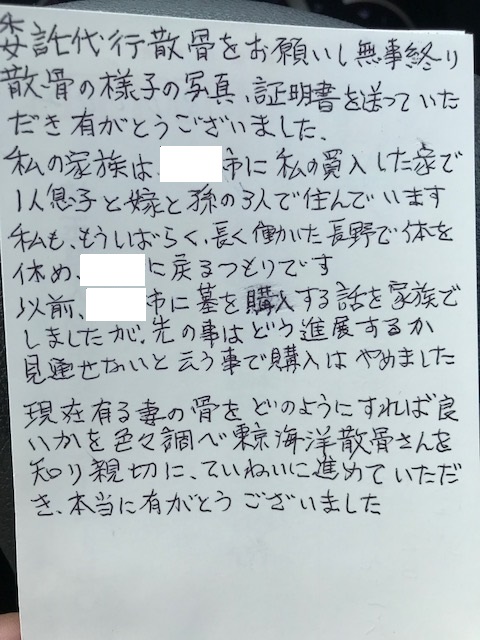 委託代行散骨をお願いし無事終り
散骨の様子の写真、証明書を送っていた
だき有がとうございました、
私の家族は、市に私の買入した家で
1人息子と嫁と孫の3人で住んでいます
私も、もうしばらく、長く働いた長野で体を
休め、に戻るつもりです
以前、市に墓を購入する話を家族で
しましたが、先の事はどう進展するか
見通せないと云う事で購入はやめました
現在有る妻の骨をどのようにすれば良
いかを色々調べ東京海洋散骨さんを
知り親切に、ていねいに進めていただ
き、本当に有がとうございました